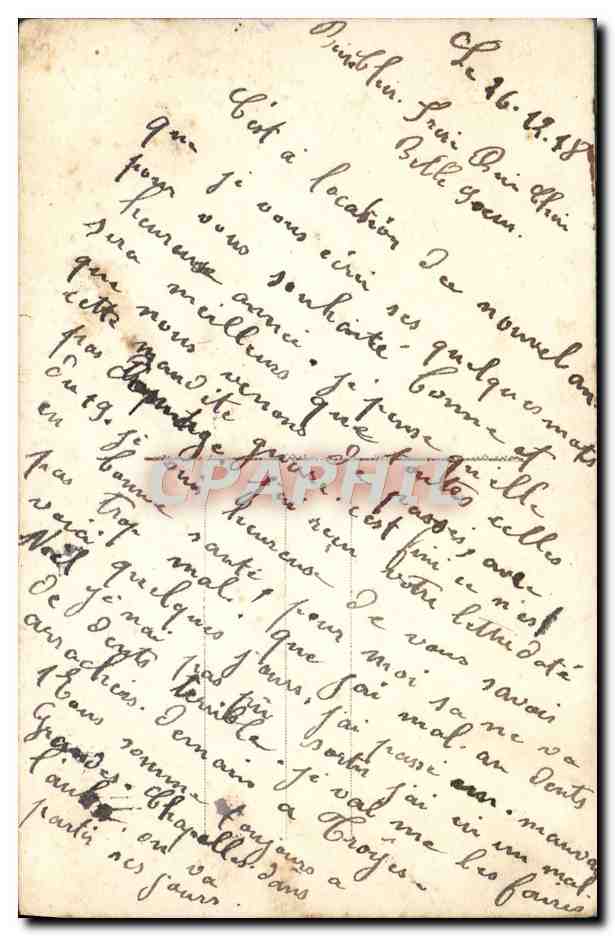 Le 26.12.18
Bien cher Frère Bien Chère
Belle Soeur.
C'est à location de nouvel an.
que je vous écrie ses quelques mots
pour vous souhaité bonne et
heureuse année. je pense qu'elle
sera meilleurs que toutes celles
que nous venons de passés, avec
cette maudite guerre c'est fini ce n'es!
pas dommage j'ai reçu votre lettre daté
du 19. je suis heureuse de vous savois
en bonne santé, pour moi sa ne va
pas trop mal. que j'ai mal au dents
voici quelques jours, j'ai passé un mauvais
Noël je n'ai pas pû sortir j'ai eu un mal
de dents terrible. je vai me les faires
arrachées. demain a Troyes.
Nous somme toujours a
Grandes-Chapelles dans
l'aube. on va
partir ses jours.
CPAPHIL